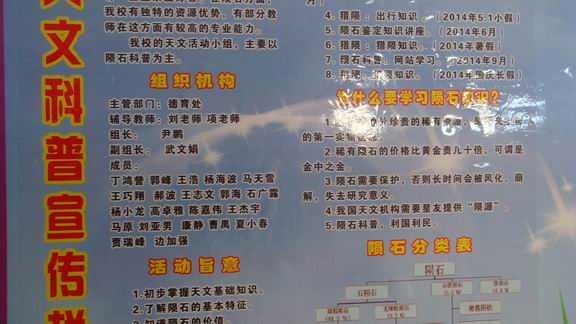 天文科普宣传栏
我校有独特的资源优势,有部分教师在这方面有较高的专业能力。
我校的天文活动小组,主要以陨石科普为主。
组织机构
主管部门:德育处
辅导教师:刘老师 项老师
组长: 尹鹏
副组长: 武文娟
成员:
丁鸿誉 郭峰 王浩 杨海波 马天雪
王巧翔 郝波 王志文 郭海 石广露
杨小龙 高卓雅 陈嘉伟 王杰宇
马原 刘亚男 康静 曹禺 夏小春
贾瑞峰 边加强
活动旨意
1.初步掌握天文基础知识。
2.了解陨石的基本特征。
3.知道陨石的价值。
4.猎陨:出行知识。(2014年5.1小假)
5.陨石鉴定知识讲座。(2014年6月)
6.猎陨:猎陨知识。(2014年暑假)
7.陨石科普:网站学习。(2014年9月)
8.科陨:猎陨知识。(2014年国庆长假)
为什么要学习陨石知识?
的第一实物
2.稀有陨石的价格比黄金贵几十倍,可谓是
金中之金。
3.陨石需要保护,否则长时间会被风化、崩
解,失去研究意义。
4.我国天文机构需要星友提供“陨源”。
5.陨石科普,利国利民。
陨石分类表
陨石
石陨石
石铁陨石
铁陨石
球粒陨石
无球粒陨石